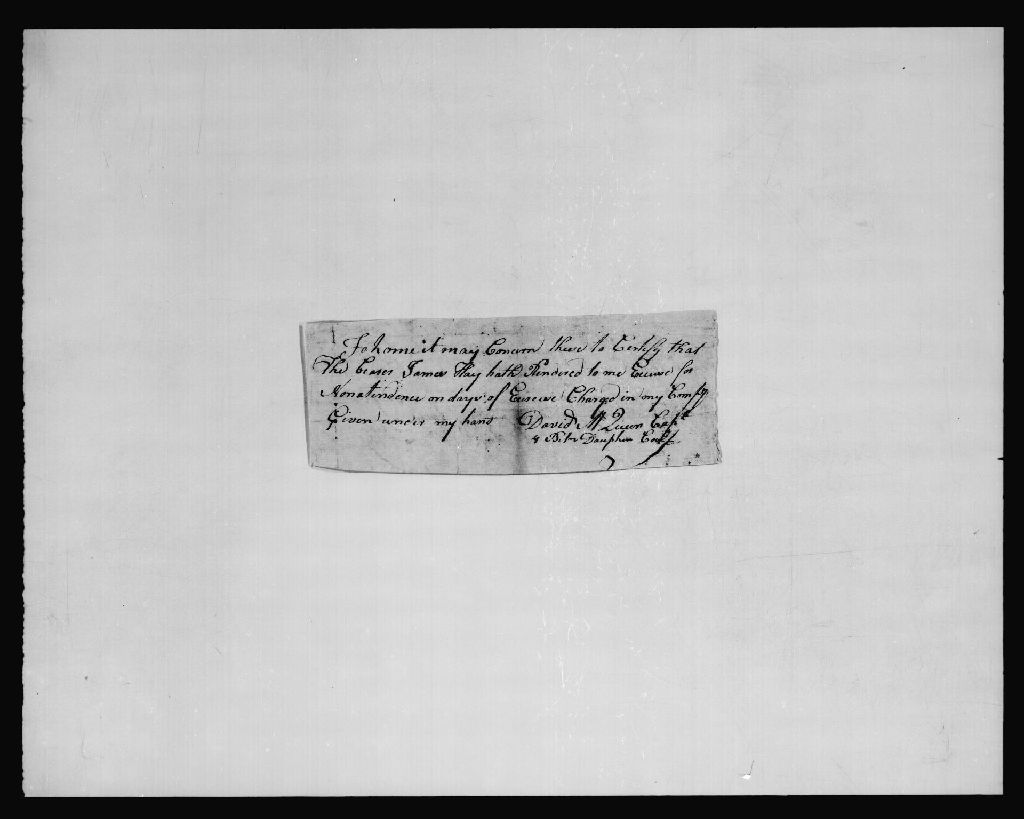 To home it may Concern these to Certify that
The bearer James Hay hath Rendered to me Excuse for
Nonatendence on days of Exercise Charged in my Compy
Given under my hand David McQueen Capt
8 Bitn Dauphin County